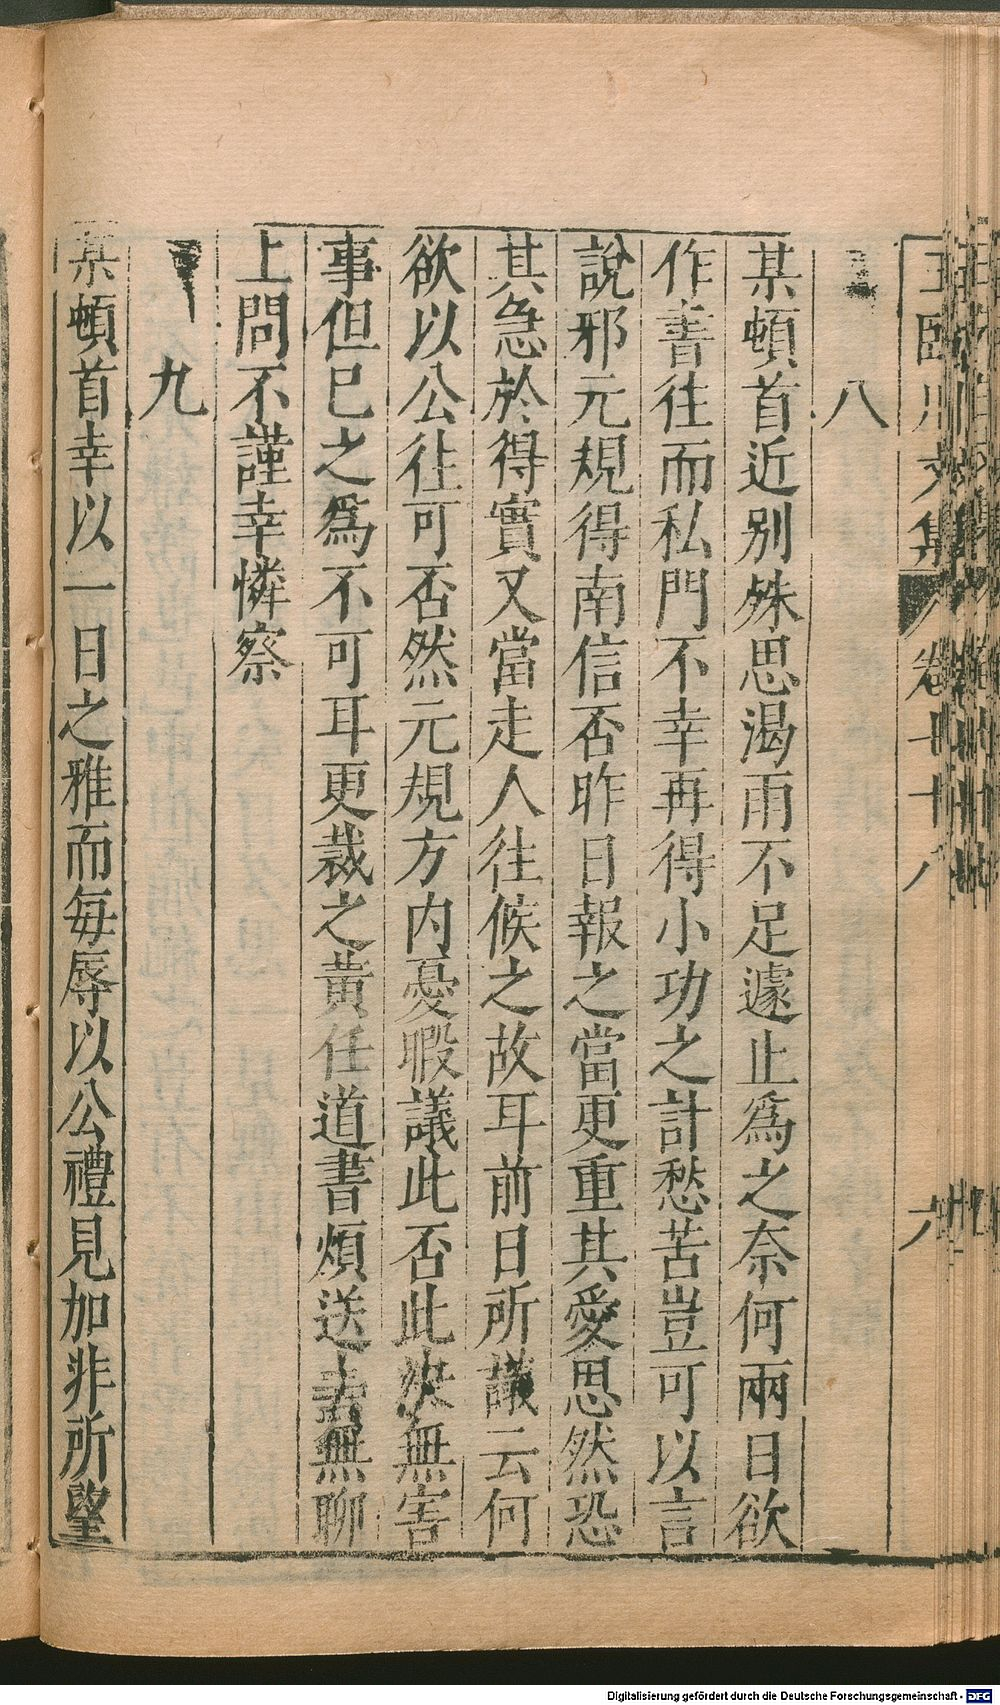 王臨川文集 卷七十八 六
八
某頓首近别殊思渴雨不足遽止爲之奈何兩日欲
作書往而私門不幸再得小功之計愁苦豈可以言
說邪元規得南信否昨日報之當更重其愛思然恐
其急於得實又當走人往候之故耳前日所議云何
欲以公往可否然元規方内憂暇議此否此決無害
事但已之爲不可耳更裁之黄任道書煩送去無聊
上問不謹幸憐察
九
某頓首幸以一日之雅而每辱以公禮見加非所望
Digitalisierung gefördert durch die Deutsche Forschungsgemeinschaft - DFG